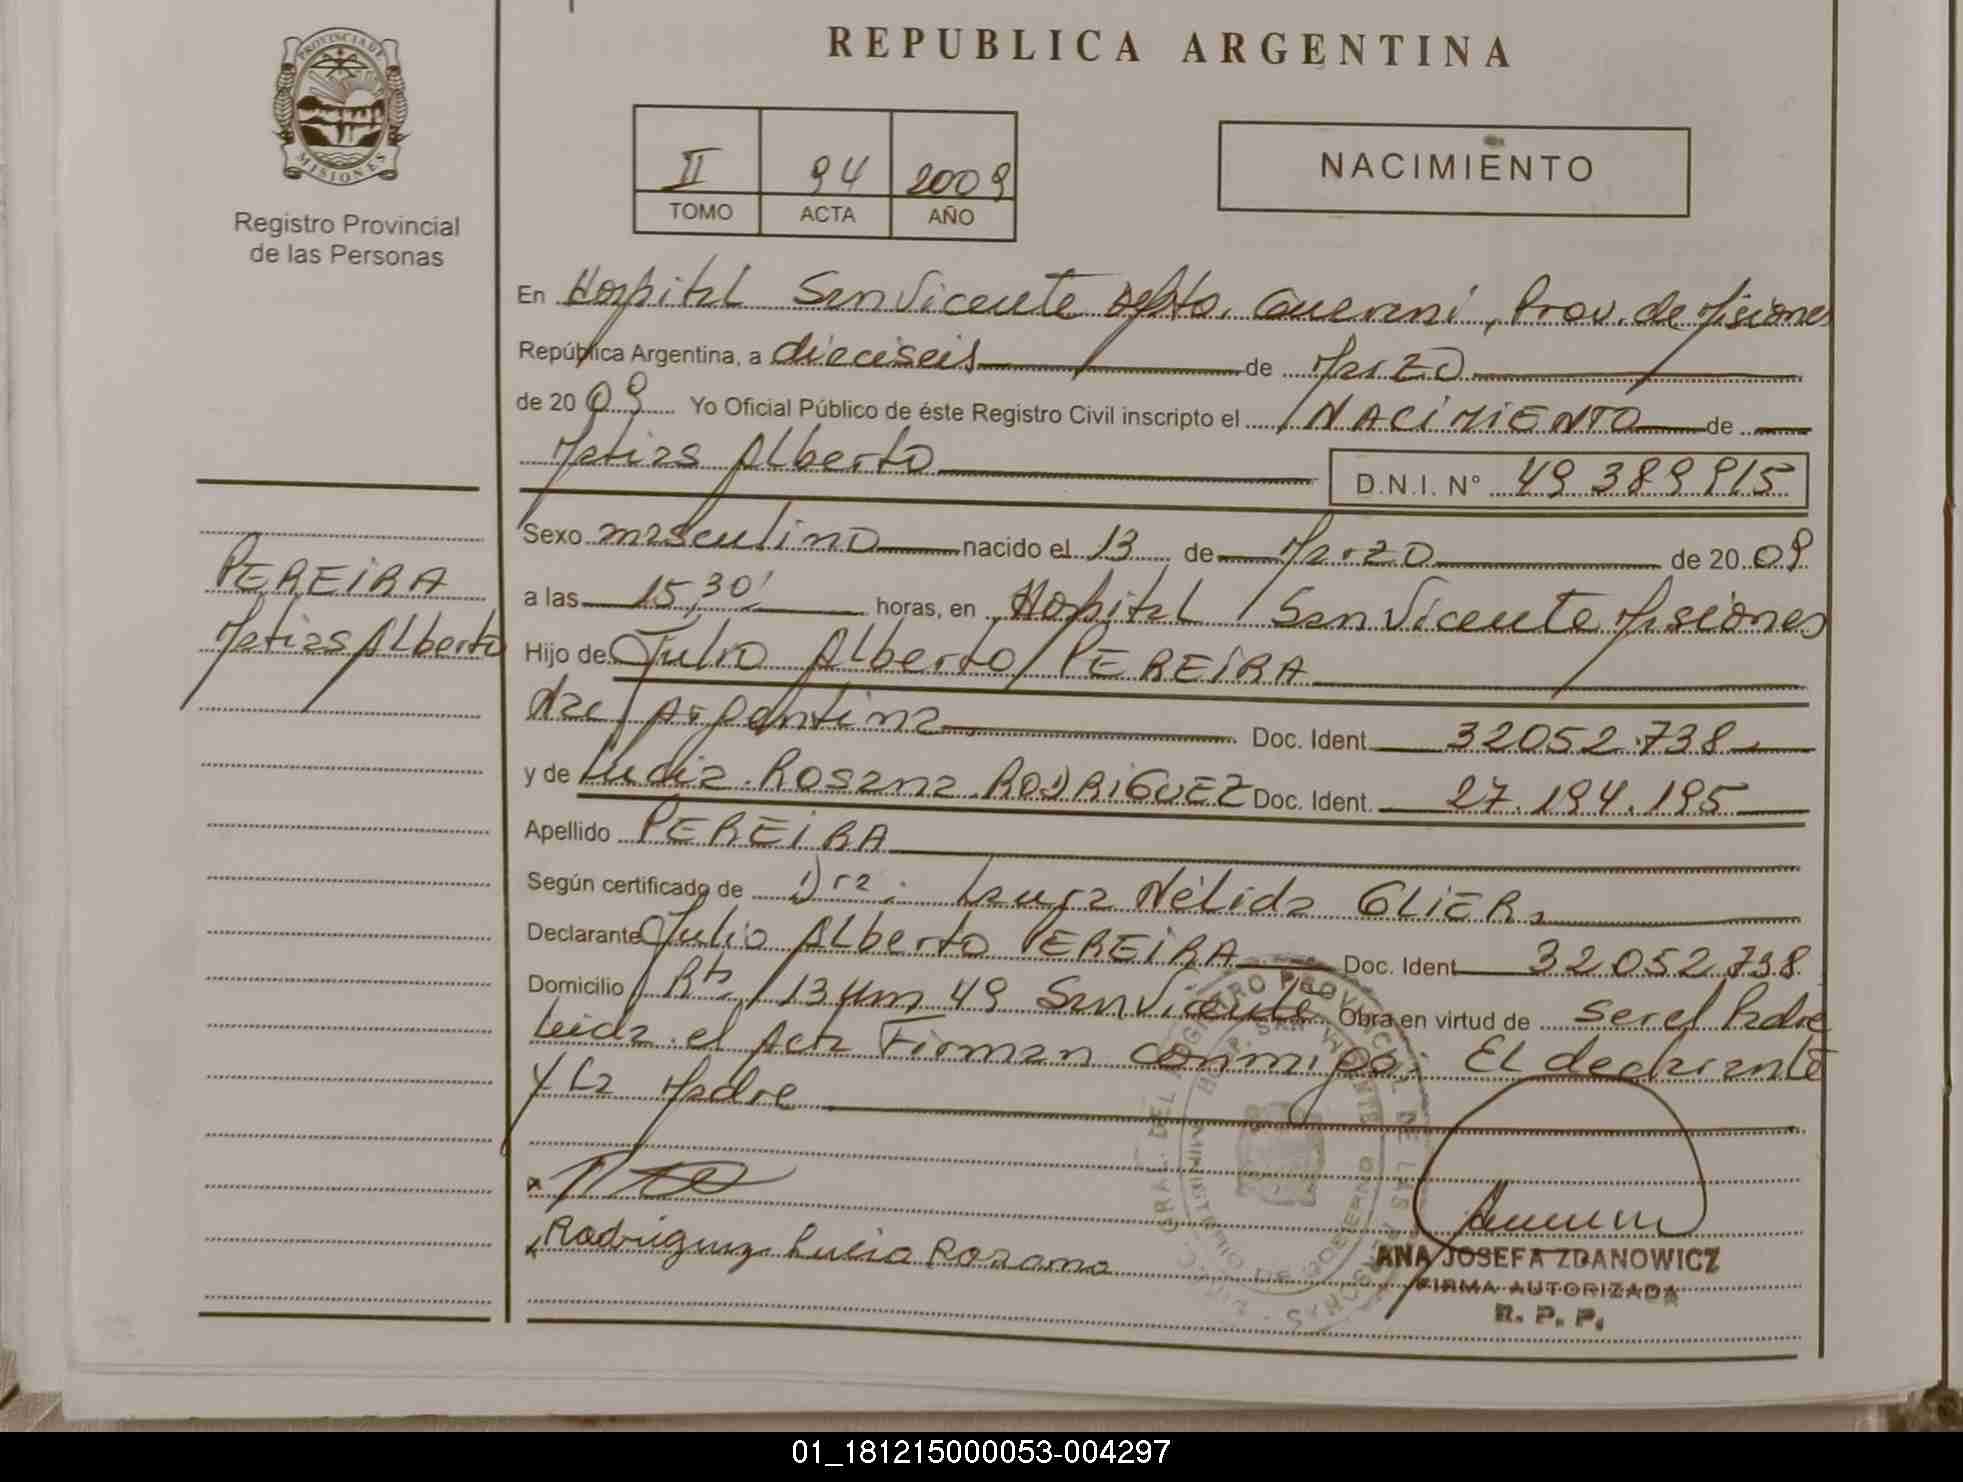 REPUBLICA ARGENTINA
PROVINCIA DE MISIONES
Registro Provincial
de las Personas
II 94 2009
TOMO ACTA AÑO
NACIMIENTO
En Hospital San Vicente Dpto. Guarani, Prov. de Misiones
República Argentina, a dieciseis de Marzo
de 2009 Yo Oficial Público de éste Registro Civil inscripto el NACIMIENTO de
Matias Alberto D.N.I. N° 49 389 915
Sexo masculino nacido el 13 de Marzo de 2009
PEREIRA
Matias Alberto
a las 15,30' horas, en Hospital San Vicente Misiones
Hijo de Julio Alberto PEREIRA
Nac Argentina Doc. Ident. 32052.738
y de Lucia Rosana RODRIGUEZ Doc. Ident. 27.194.195
Apellido PEREIRA
Según certificado de Dra. Laura Nélida GLIER
Declarante Julio Alberto PEREIRA Doc. Ident 32052738
Domicilio Rta 13 Km 49 San Vicente Obra en virtud de ser el Padre
leida el Acta Firman conmigo; El declarante
y La Madre
Rodriguez Lucia Rosana
ANA JOSEFA ZDANOWICZ
FIRMA AUTORIZADA
R. P. P.
01_181215000053-004297